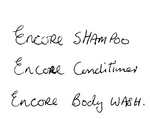 Encore SHAMPOO
Encore Conditiner
Encore Body WASH.